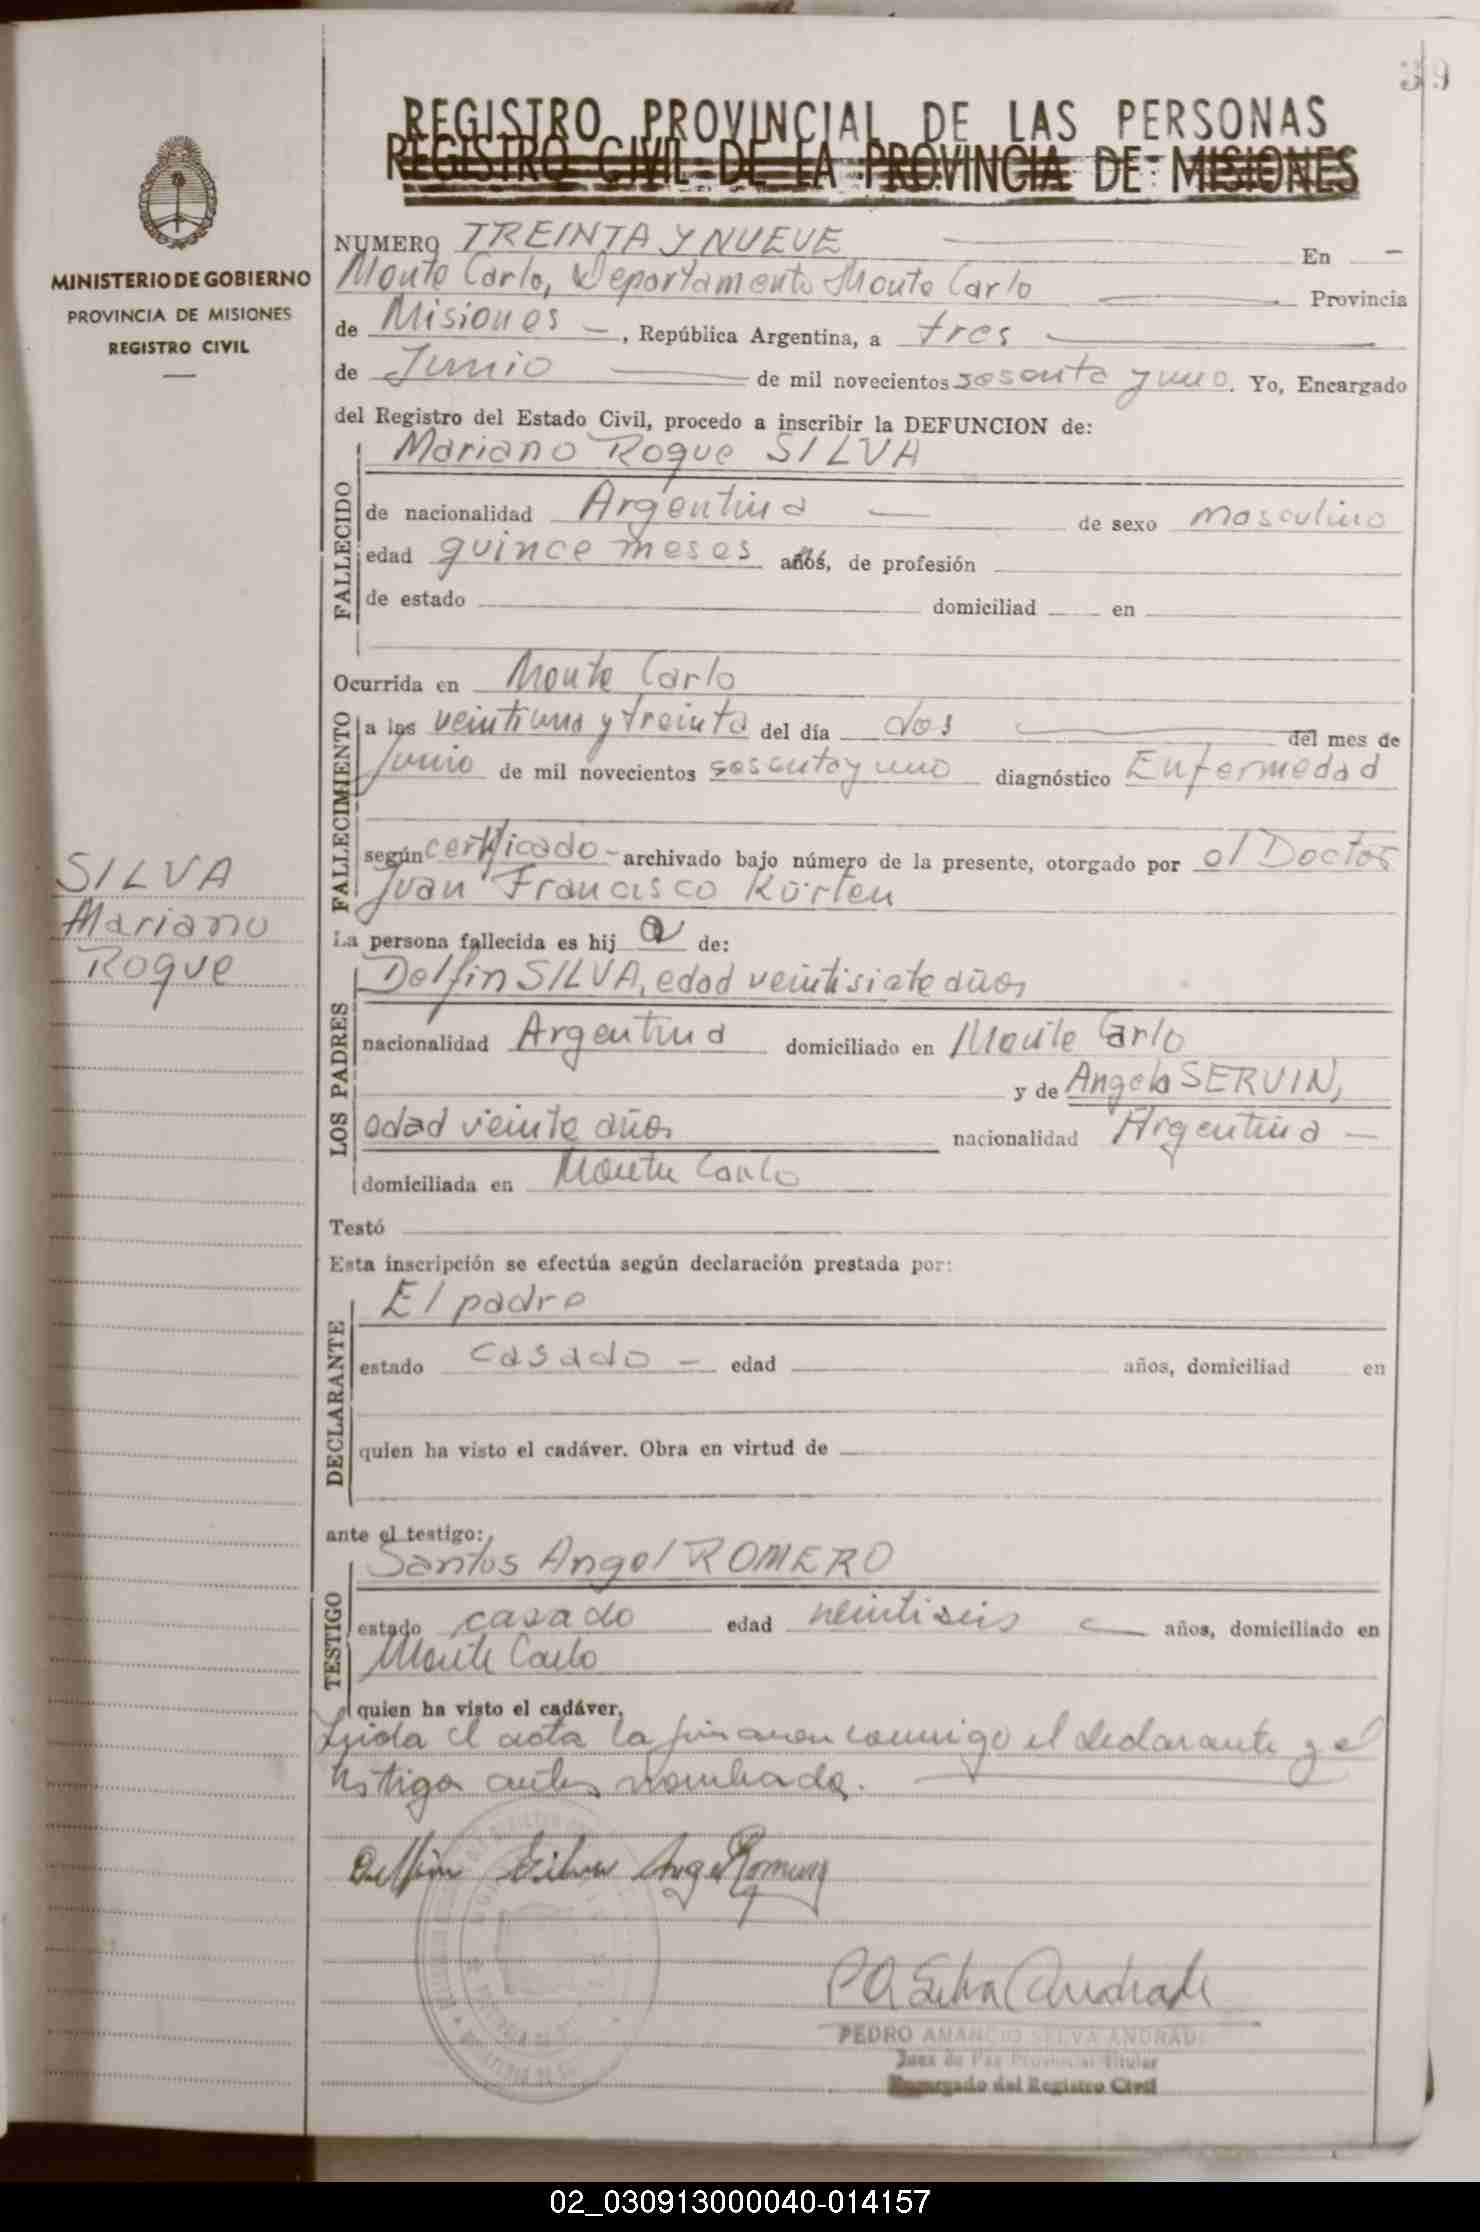 39
REGISTRO PROVINCIAL DE LAS PERSONAS
REGISTRO CIVIL DE LA PROVINCIA DE MISIONES
MINISTERIO DE GOBIERNO
PROVINCIA DE MISIONES
REGISTRO CIVIL
NUMERO TREINTA Y NUEVE En
Monte Carlo, Departamento Monte Carlo Provincia
de Misiones, República Argentina, a tres
de Junio de mil novecientos sesenta y uno. Yo, Encargado
del Registro del Estado Civil, procedo a inscribir la DEFUNCION de:
FALLECIDO
Mariano Roque SILVA
de nacionalidad Argentina de sexo masculino
edad quince meses años, de profesión
de estado domiciliad en
Ocurrida en Monte Carlo
FALLECIMIENTO
a las veintiuna y treinta del día dos del mes de
Junio de mil novecientos sesenta y uno diagnóstico Enfermedad
según certificado archivado bajo número de la presente, otorgado por el Doctor
Juan Francisco Kürten
SILVA
Mariano
Roque
La persona fallecida es hij o de:
LOS PADRES
Delfin SILVA, edad veintisiete años
nacionalidad Argentina domiciliado en Monte Carlo
y de Angela SERVIN,
edad veinte años nacionalidad Argentina
domiciliada en Monte Carlo
Testó
Esta inscripción se efectúa según declaración prestada por:
DECLARANTE
El padre
estado casado edad años, domiciliad en
quien ha visto el cadáver. Obra en virtud de
ante el testigo:
TESTIGO
Santos Angel ROMERO
estado casado edad veintiseis años, domiciliado en
Monte Carlo
quien ha visto el cadáver.
Leida el acta la firmaron conmigo el declarante y el
testigo antes nombrado.
Delfin Silva Angel Romero
P A Selva Andrade
PEDRO AMANCIO SELVA ANDRADE
Juez de Paz Provincial Titular
Encargado del Registro Civil
02_030913000040-014157